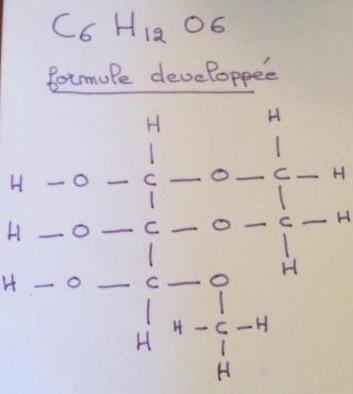 C6 H12 O6
formule developpée
H H
H – O – C – O – C – H
H – O – C – O – C – H
H
H – O – C – O
H – C – H
H
H